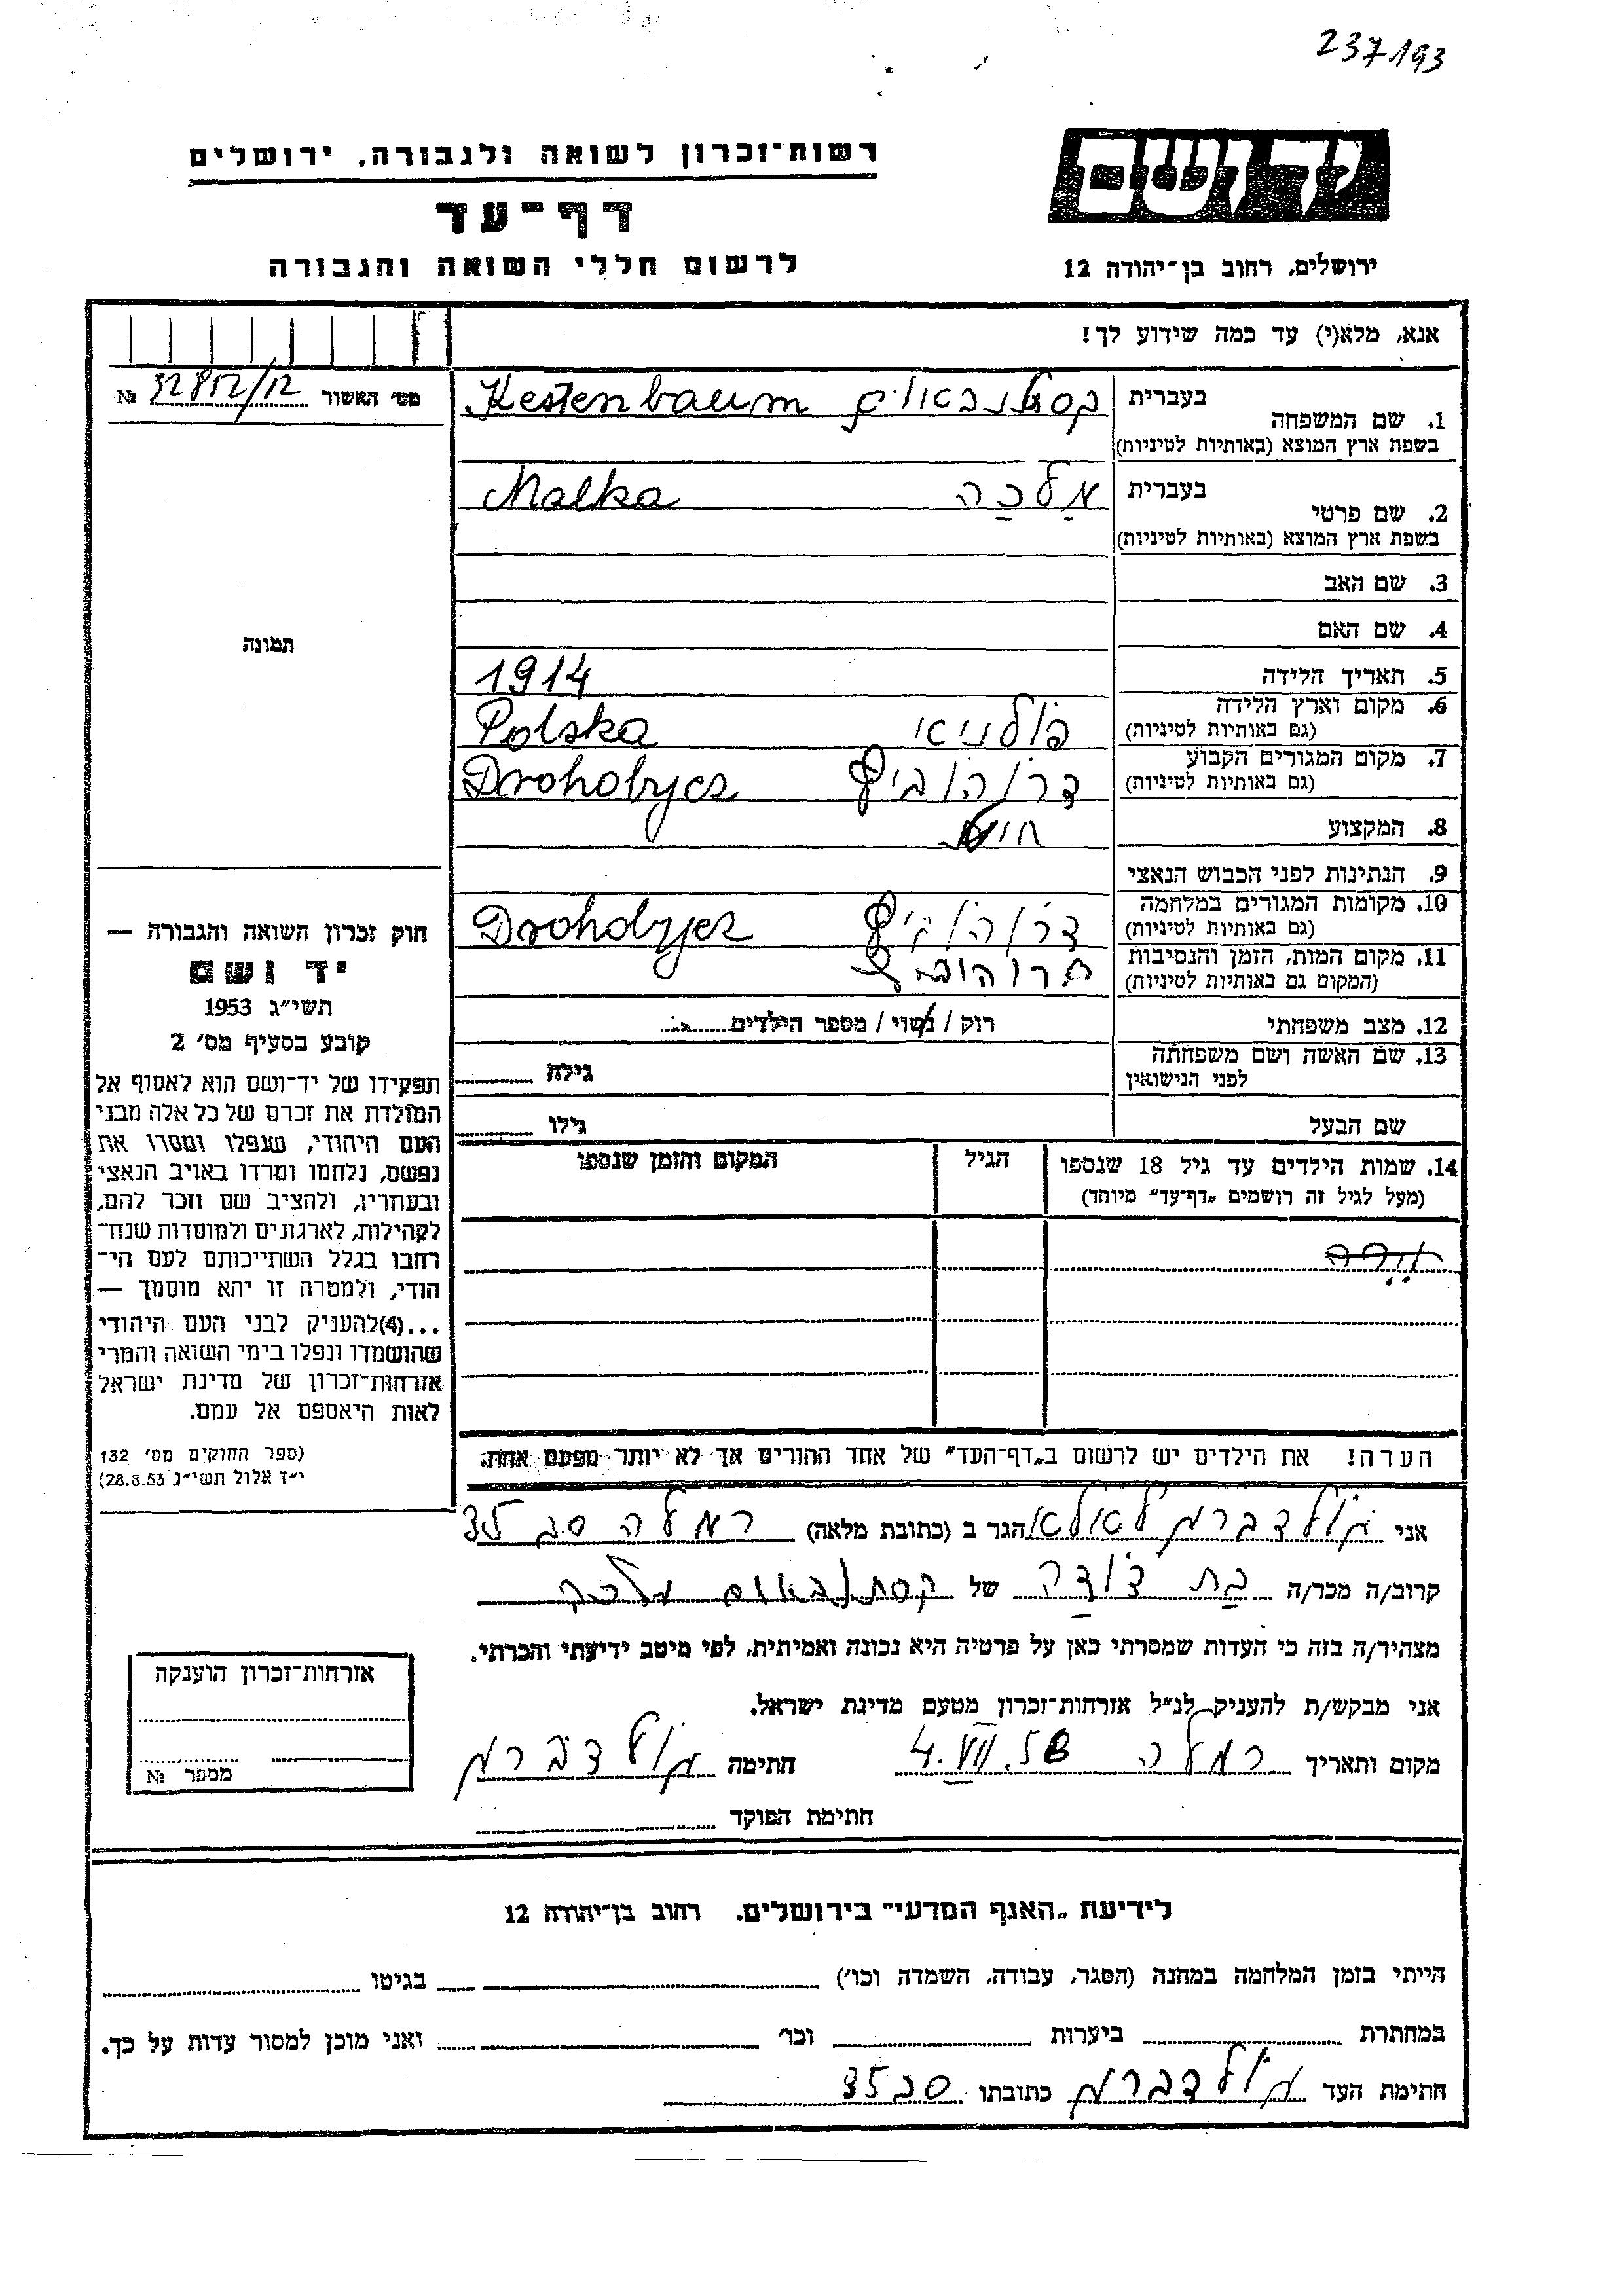 237193
יד ושם
ירושלים, רחוב בן־יהודה 12
רשות־זכרון לשואה ולגבורה, ירושלים
דף־עד
לרשום חללי השואה והגבורה
אנא, מלא(י) עד כמה שידוע לך!
מס׳ האשור №
1. שם המשפחה
בעברית
Kestenbaum
בשפת ארץ המוצא (באותיות לטיניות)
2. שם פרטי
בעברית מַלכַּה Malka
בשפת ארץ המוצא (באותיות לטיניות)
3. שם האב
4. שם האם
5. תאריך הלידה 1914
6. מקום וארץ הלידה
(גם באותיות לטיניות) Polska
7. מקום המגורים הקבוע
(גם באותיות לטיניות) Drohobycz
8. המקצוע
9. הנתינות לפני הכבוש הנאצי
10. מקומות המגורים במלחמה
(גם באותיות לטיניות) Drohobycz
11. מקום המות, הזמן והנסיבות
(המקום גם באותיות לטיניות)
12. מצב משפחתי רוק / נשוי / מספר הילדים
13. שם האשה ושם משפחתה
לפני הנישואין גילה
שם הבעל גילו
14. שמות הילדים עד גיל 18 שנספו הגיל המקום והזמן שנספו
(מעל לגיל זה רושמים „דף־עד״ מיוחד)
תמונה
חוק זכרון השואה והגבורה —
יד ושם
תשי״ג 1953
קובע בסעיף מס׳ 2
תפקידו של יד־ושם הוא לאסוף אל
המולדת את זכרם של כל אלה מבני
העם היהודי, שנפלו ומסרו את
נפשם, נלחמו ומרדו באויב הנאצי
ובעוזריו, ולהציב שם וזכר להם,
לקהילות, לארגונים ולמוסדות שנח־
רחבו בגלל השתייכותם לעם הי־
הודי, ולמטרה זו יהא מוסמך —
...(4)להעניק לבני העם היהודי
שהושמדו ונפלו בימי השואה והמרי
אזרחות־זכרון של מדינת ישראל
לאות היאספם אל עמם.
(ספר החוקים מס׳ 132
י״ז אלול תשי״ג 28.8.53)
הערה! את הילדים יש לרשום ב„דף־העד״ של אחד ההורים אך לא יותר מפעם אחת.
אני גולדברג לאלא הגר ב (כתובת מלאה) רמלה
קרוב/ה מכר/ה בַּת דוֹדַה של קסטנבאום מלכה
מצהיר/ה בזה כי העדות שמסרתי כאן על פרטיה היא נכונה ואמיתית, לפי מיטב ידיעתי והכרתי.
אני מבקש/ת להעניק לנ״ל אזרחות־זכרון מטעם מדינת ישראל.
מקום ותאריך רמלה 4.VII.58 חתימה גולדברג
חתימת הפוקד
אזרחות־זכרון הוענקה
מספר №
לידיעת „האגף המדעי״ בירושלים. רחוב בן־יהודה 12
הייתי בזמן המלחמה במחנה (הסגר, עבודה, השמדה וכו׳) בגיטו
במחתרת ביערות וכו׳ ואני מוכן למסור עדות על כך.
חתימת העד גולדברג כתובתו